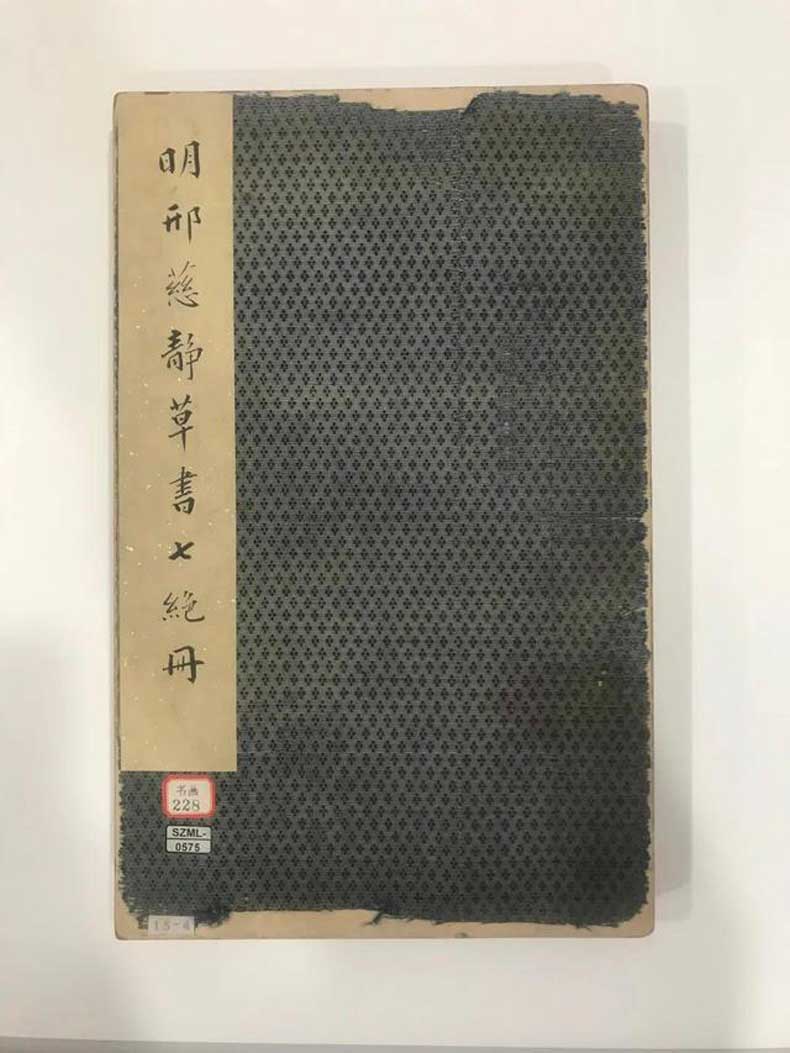 明邢慈静草書七絶冊
书画
228
SZML-
0575
15-4